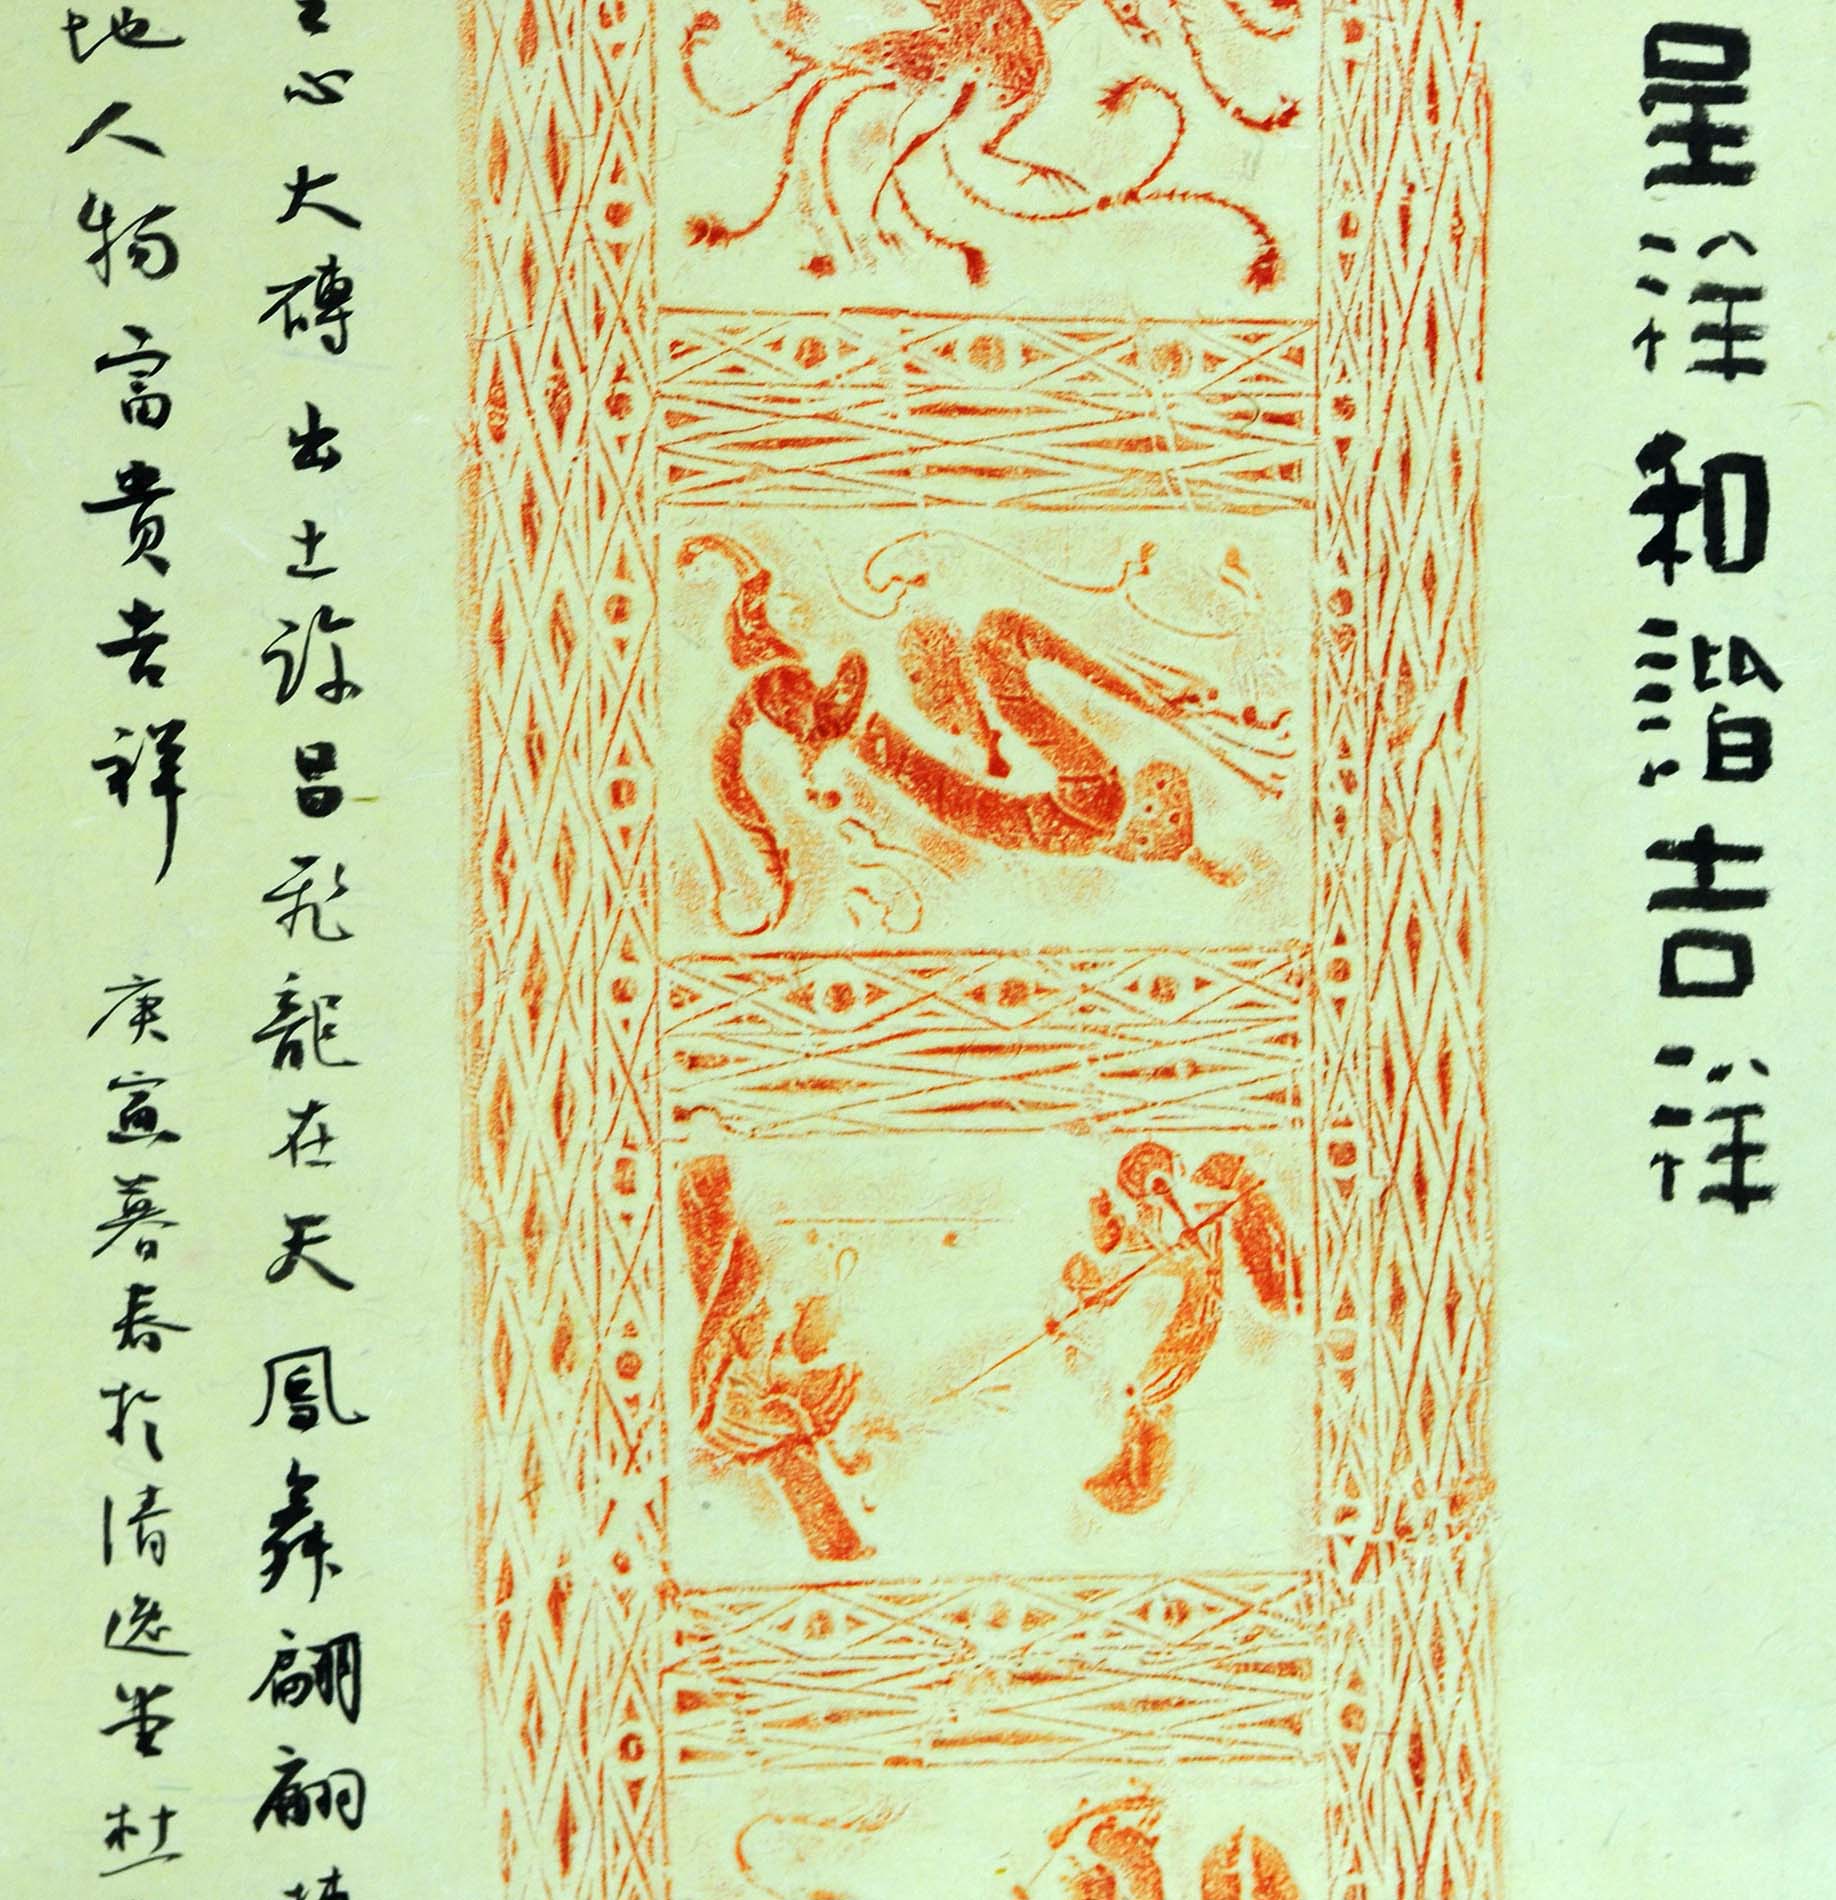 呈祥和諧吉祥
心大磚出土許昌飛龍在天鳳舞翩翩
地人物富貴吉祥 庚寅暮春於清逸堂杜